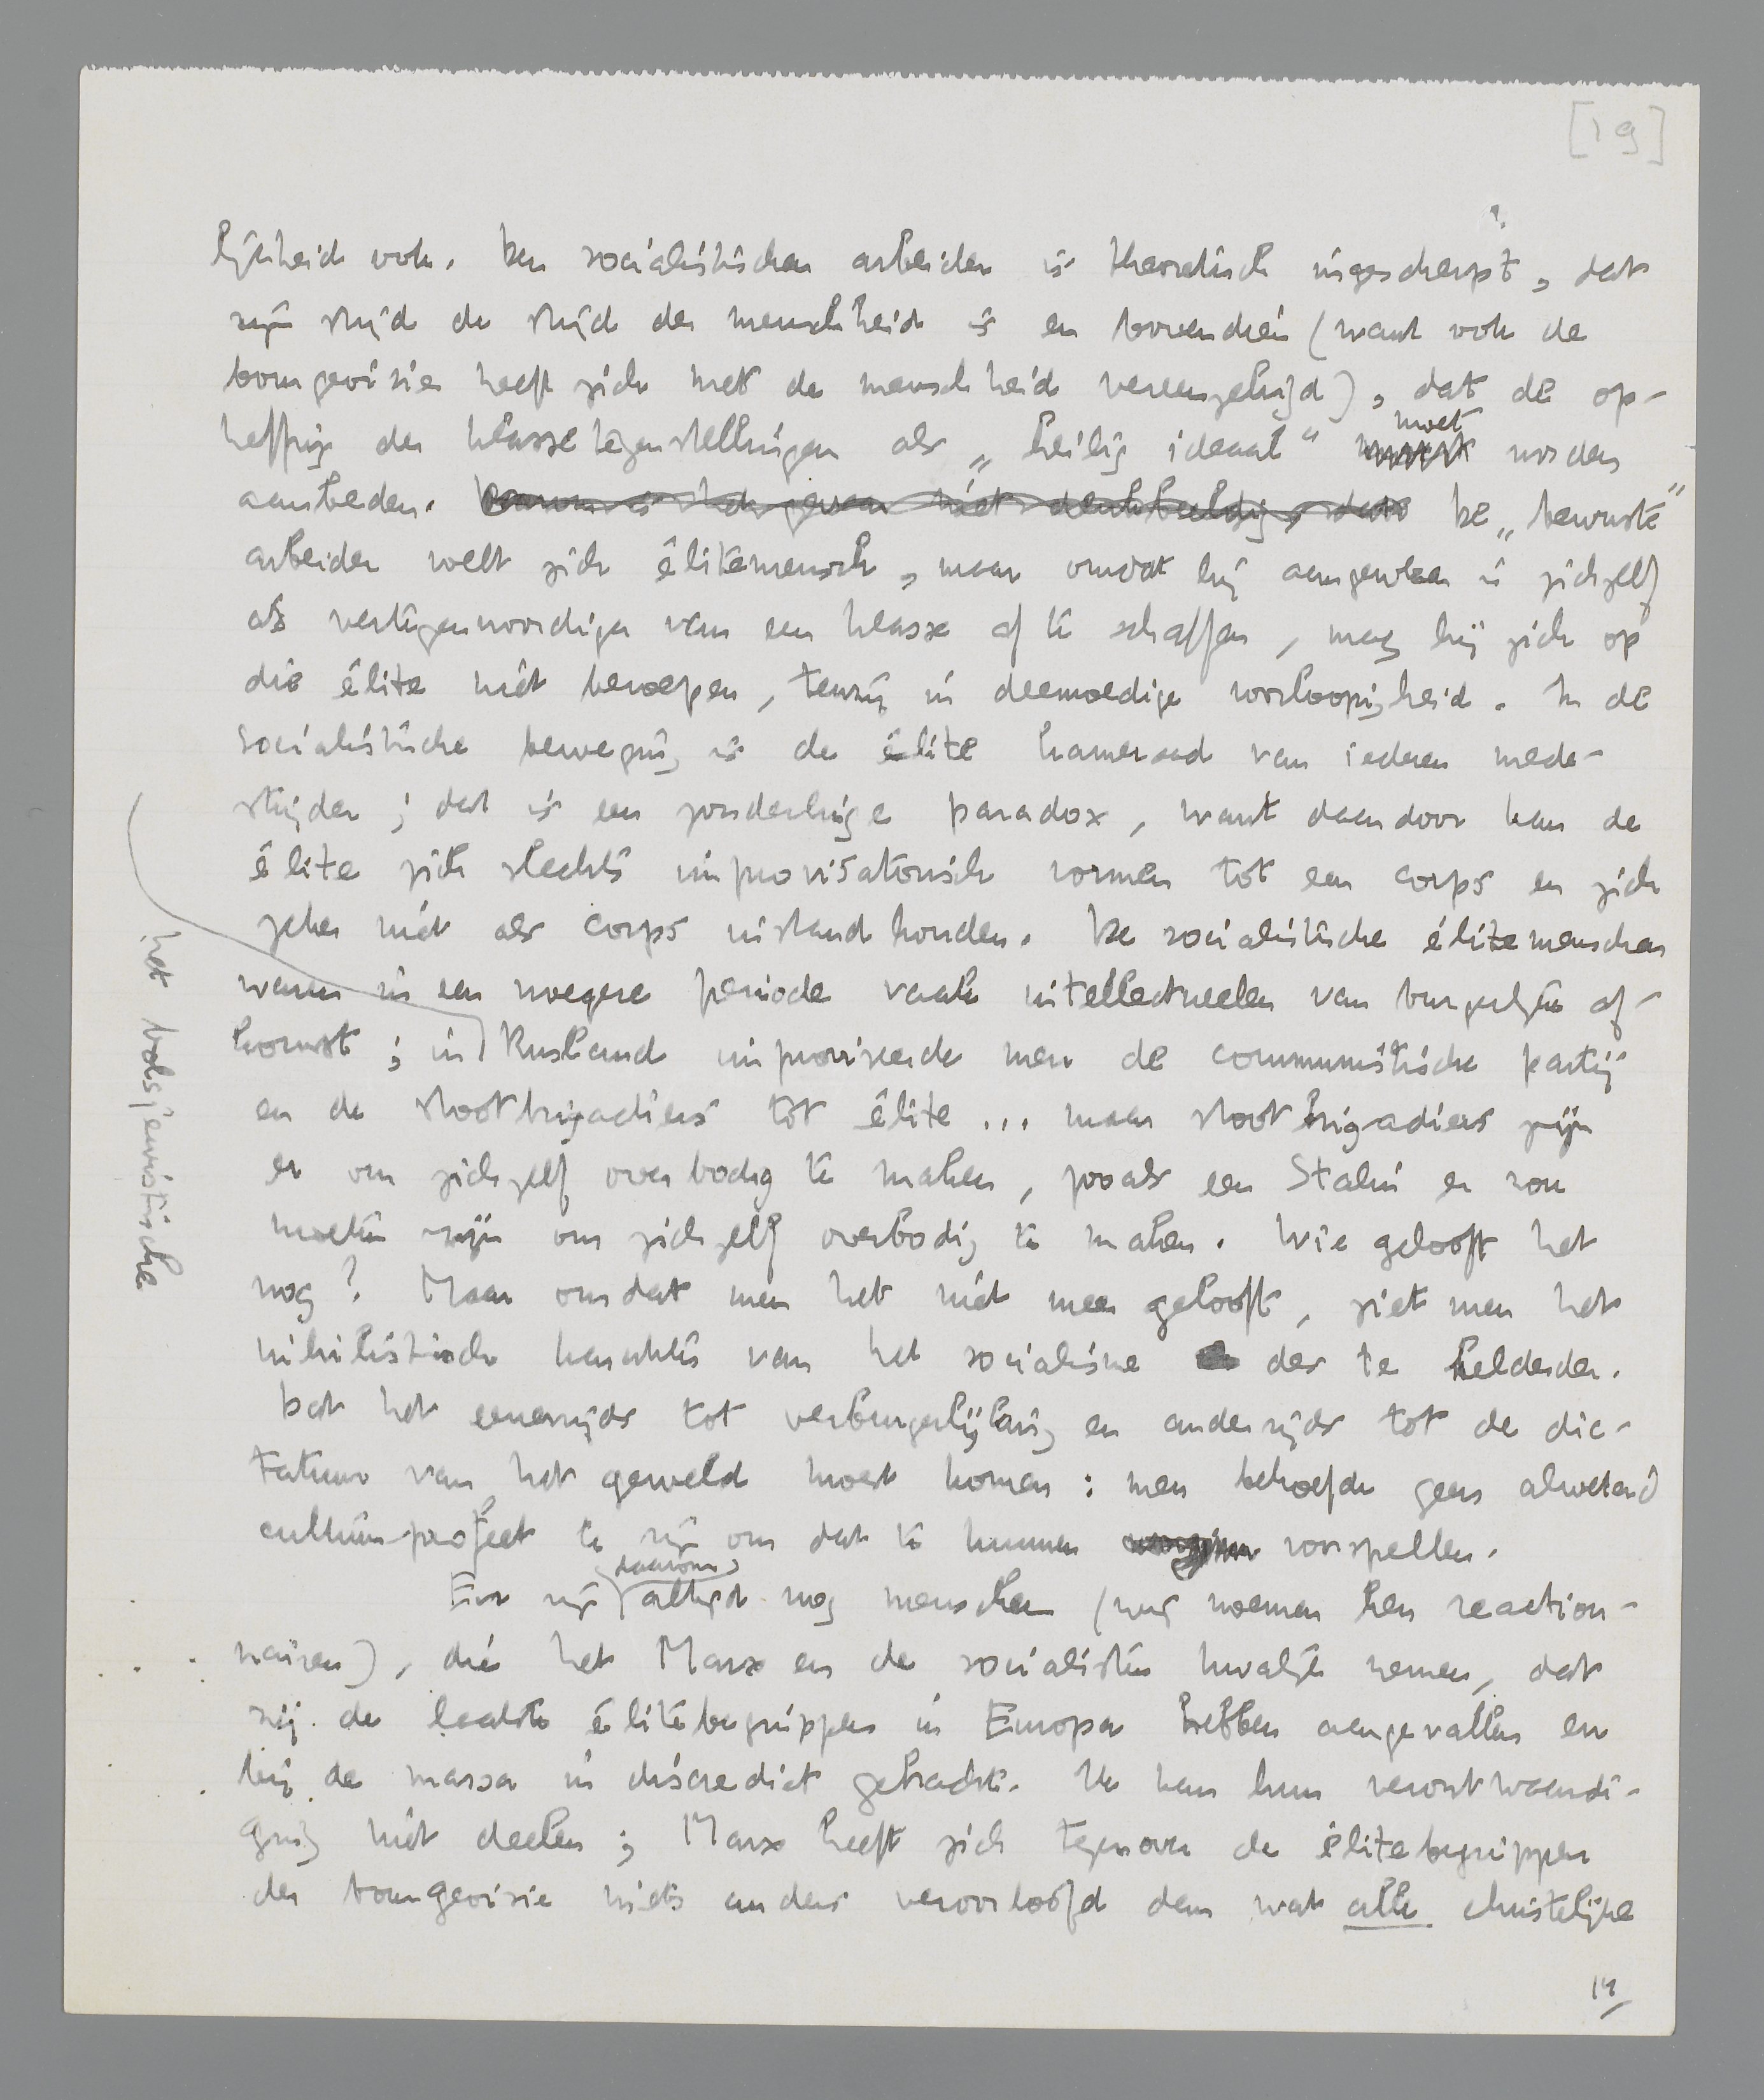 [19]
lijkheid ook. Den socialistischen arbeider is theoretisch ingescherpt, dat
zijn strijd de strijd der menschheid is en bovendien (want ook de
bourgeoisie heeft zich met de menschheid vereenzelvigd), dat de op-
heffing der klassetegenstellingen als „heilig ideaal" moet worden
aanbeden. De „bewuste"
arbeider voelt zich élitemensch, maar omdat hij aangewezen is zichzelf
als vertegenwoordiger van een klasse af te schaffen, mag hij zich op
die élite niet beroepen, tenzij in deemoedige voorloopigheid. In de
socialistische beweging is de élite kameraad van iederen mede-
strijder; dat is een zonderlinge paradox, want daardoor kan de
élite zich slechts improvisatorisch vormen tot een corps en zich
zeker niet als corps instand houden. De socialistische élitemenschen
waren in een vroegere periode vaak intellectueelen van burgerlijke af-
komst; in het bolsjewistische Rusland improviseerde men de communistische partij
en de stootbrigadiers tot élite ... maar stootbrigadiers zijn
er om zichzelf overbodig te maken, zooals een Stalin er zou
moeten zijn om zichzelf overbodig te maken. Wie gelooft het
nog? Maar omdat men het niet meer gelooft, ziet men het
nihilistisch karakter van het socialisme des te helderder.
Dat het eenerzijds tot verburgerlijking en anderzijds tot de dic-
tatuur van het geweld moest komen: men behoefde geen alwetend
cultuurprofeet te zijn om dat te kunnen voorspellen.
Er zijn daarom altijd nog menschen (wij noemen hen reaction-
nairen), die het Marx en de socialisten kwalijk nemen, dat
zij de laatste élitebegrippen in Europa hebben aangevallen en
bij de massa in discrediet gebracht. Ik kan hun verontwaardi-
ging niet deelen; Marx heeft zich tegenover de élitebegrippen
der bourgeoisie niets anders veroorloofd dan wat alle christelijke
19